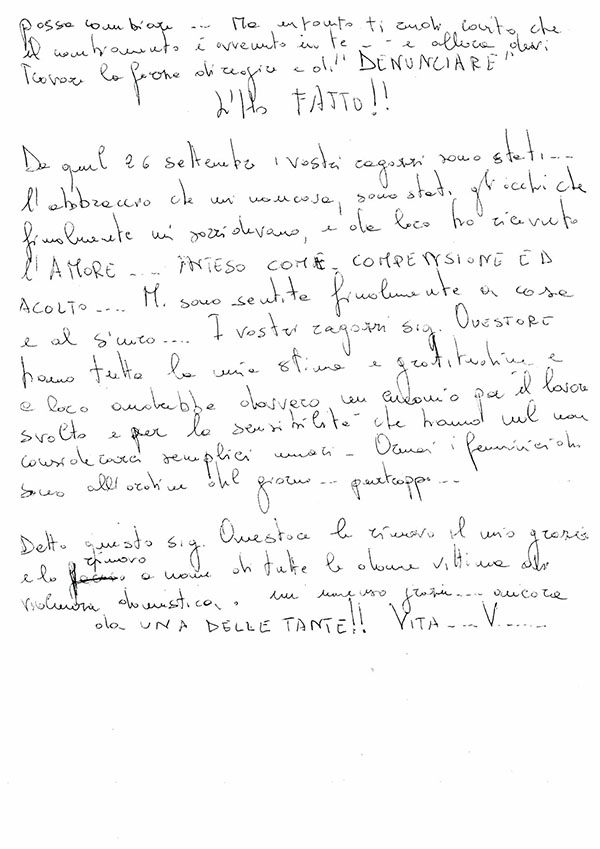 possa cambiare ... Ma intanto ti rendi conto che
il cambiamento è avvenuto in te --- e allora devi
trovare la forza di reagire e di "DENUNCIARE"
L'Ho FATTO!!
Da quel 26 settembre i vostri ragazzi sono stati ...
l'abbraccio che mi mancava, sono stati gli occhi che
finalmente mi sorridevano, e da loro ho ricevuto
l'AMORE .... INTESO COME COMPENSIONE ED
ACOLTO .... Mi sono sentita finalmente a casa
e al sicuro .... I vostri ragazzi sig. QUESTORE
hanno tutta la mia stima e gratitudine e
a loro andrebbe davvero un encomio per il lavoro
svolto e per la sensibilità che hanno nel non
considerarci semplici numeri - Ormai i femminicidi
sono all'ordine del giorno ... purtroppo ...
Detto questo sig. Questore le rinnovo il mio grazie
e lo rinnovo a nome di tutte le donne vittima di
violenza domestica. un immenso grazie ... ancora
da UNA DELLE TANTE!! VITA .... V.......